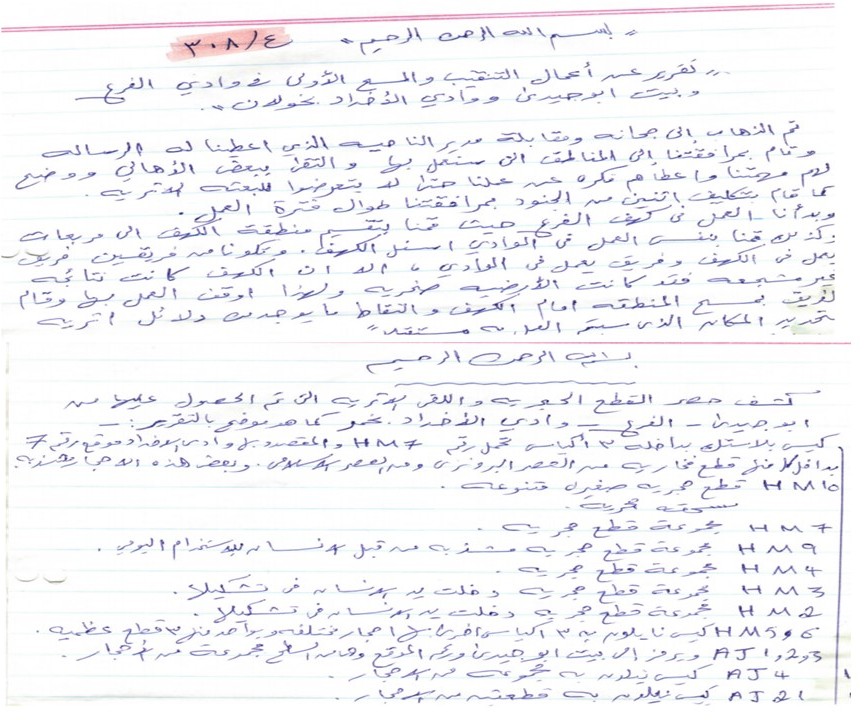 « بسم الله الرحمن الرحيم » ٣٠٨/٤
« تقرير عن أعمال التنقيب والمسح الأولى في وادي الفرع
وبيت ابو جيدى ووادي الأخراد بخولان ».
تم الذهاب الى جحانه ومقابلة مدير الناحيه الذي اعطينا له الرساله
وقام بمرافقتنا إلى المناطق التي سنعمل بها والتقى ببعض الأهالي ووضح
لهم مهمتنا واعطاهم فكره عن عملنا حتى لا يتعرضوا للبعثه الاثريه .
كما قام بتكليف اثنين من الجنود بمرافقتنا طوال فترة العمل .
وبدأنا العمل في كهف الفرع حيث قمنا بتقسيم منطقة الكهف الى مربعات
وكذلك قمنا بنفس العمل في الوادي اسفل الكهف . وتكونا من فريقين فريق
يعمل في الكهف وفريق يعمل في الوادي ، الا ان الكهف كانت نتائجه
غير مشجعه فقد كانت الأرضيه صخريه ولهذا اوقف العمل بها وقام
الفريق بمسح المنطقه امام الكهف والتقاط ما يوجد من دلائل اثريه
لتحديد المكان الذي سيتم العمل به مستقبلاً
بسم الله الرحمن الرحيم
كشف حصر القطع الحجريه واللقى الاثريه التي تم الحصول عليها من
ابو جيدى - الفرع - وادي الأخراد كما هو موضح بالتقرير : -
كيس بلاستك بداخله ٣ اكياس تحمل رقم HM7 والمقصود بها وادي الاخراد موقع رقم 7
بداخل كل منها قطع فخاريه من العصر البرونزي ومن العصر الاسلامي . وبعض هذه الاحجار مشذبه
HM10 قطع حجريه صغيره متنوعه .
مسحقه حجريه .
HM7 مجموعة قطع حجريه .
HM9 مجموعة قطع حجريه مشذبه من قبل الانسان للاستخدام اليومي .
HM4 مجموعة قطع حجريه .
HM3 مجموعة قطع حجريه دخلت يد الانسان في تشكيلها .
HM2 مجموعة قطع حجريه دخلت يد الانسان في تشكيلها .
HM5,6 كيس نايلون به ٣ اكياس اخرى بها احجار مختلفه وبواحد منها ٣ قطع عظميه .
AJ1,2,3 ويرمز إلى بيت ابو جيدى ورقم الموقع وهي من السطح مجموعة من الأحجار .
AJ4 كيس نيلون به مجموعه من الاحجار .
AJ21 كيس نيلون به قطعتين من الاحجار .